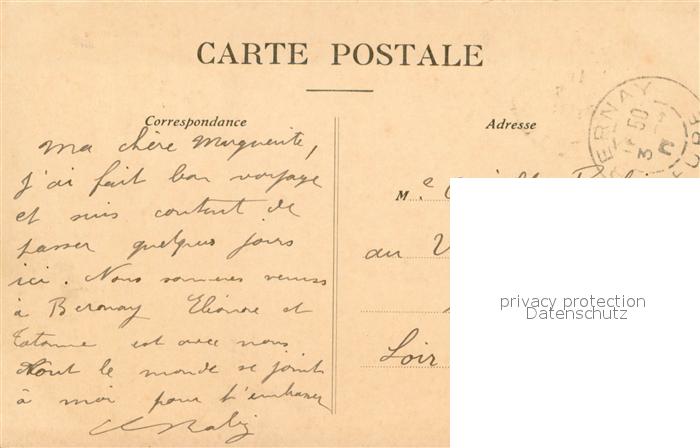 CARTE POSTALE
Correspondance
Adresse
BERNAY
EURE
Ma chère Marguerite,
J'ai fait bon voyage
et suis content de
passer quelques jours
ici. Nous sommes venus
à Bernay Elianne et
est avec nous
tout le monde se joint
à moi pour t'embrasser
M e
au V
Loir
privacy protection
Datenschutz